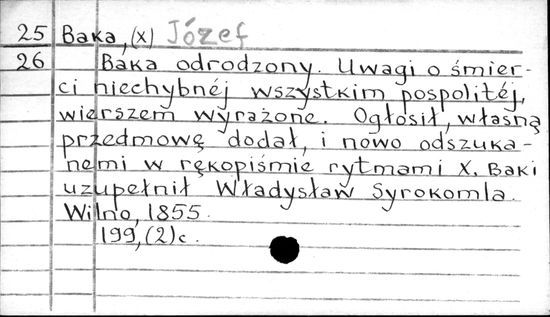 25 Baka, (x) Józef
26 Baka odrodzony. Uwagi o śmier-
ci niechybnéj wszystkim pospolitéj,
wierszem wyrażone. Ogłosił, własną
przedmowę dodał, i nowo odszuka-
nemi w rękopiśmie rytmami X. Baki
uzupełnił Władysław Syrokomla.
Wilno, 1855.
199, (2) c.